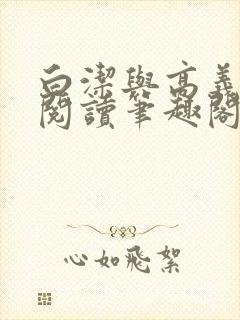 白潔與高義
閱讀筆趣閣
心如飛絮